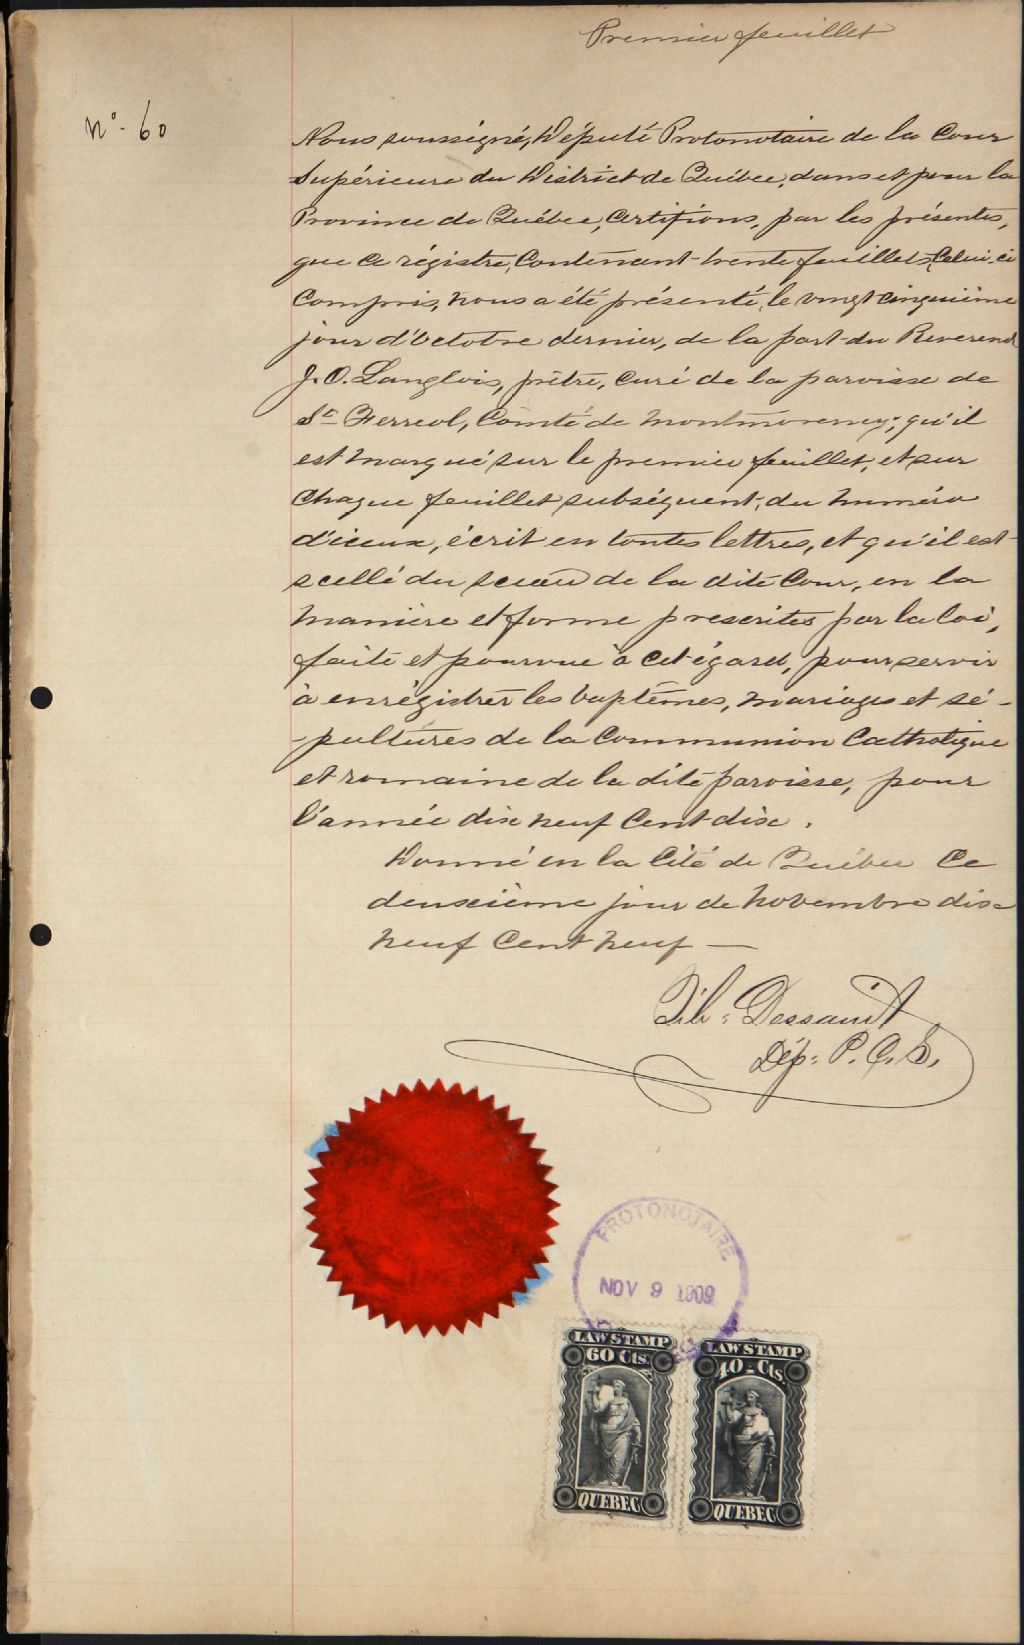 Premier feuillet
No. 60
Nous soussigné, Député Protonotaire de la Cour
Supérieure du District de Québec, dans et pour la
Province de Québec, Certifions, par les présentes,
que ce régistre, Contenant trente feuillets, Celui-ci
Compris, nous a été présenté, le vingt cinquième
jour d'Octobre dernier, de la part du Reverend
J. O. Langlois, prêtre, Curé de la paroisse de
St Ferreol, Comté de Montmorency; qu'il
est marqué sur le premier feuillet, et sur
Chaque feuillet subséquent, du numéro
d'iceux, écrit en toutes lettres, et qu'il est
scellé du sceau de la dite Cour, en la
manière et forme prescrites par la loi,
faite et pourvue à cet égard, pour servir
à enrégistrer les baptêmes, mariages et sé-
-pultures de la Communion Catholique
et romaine de la dite paroisse, pour
l'année dix neuf Cent dix.
Donné en la Cité de Québec Ce
deuxième jour de Novembre dix
neuf Cent neuf —
Dessault
Dép. P. C. S.
PROTONOTAIRE
NOV 9 1909
LAW STAMP
60 Cts.
QUEBEC
LAW STAMP
40 - Cts.
QUEBEC